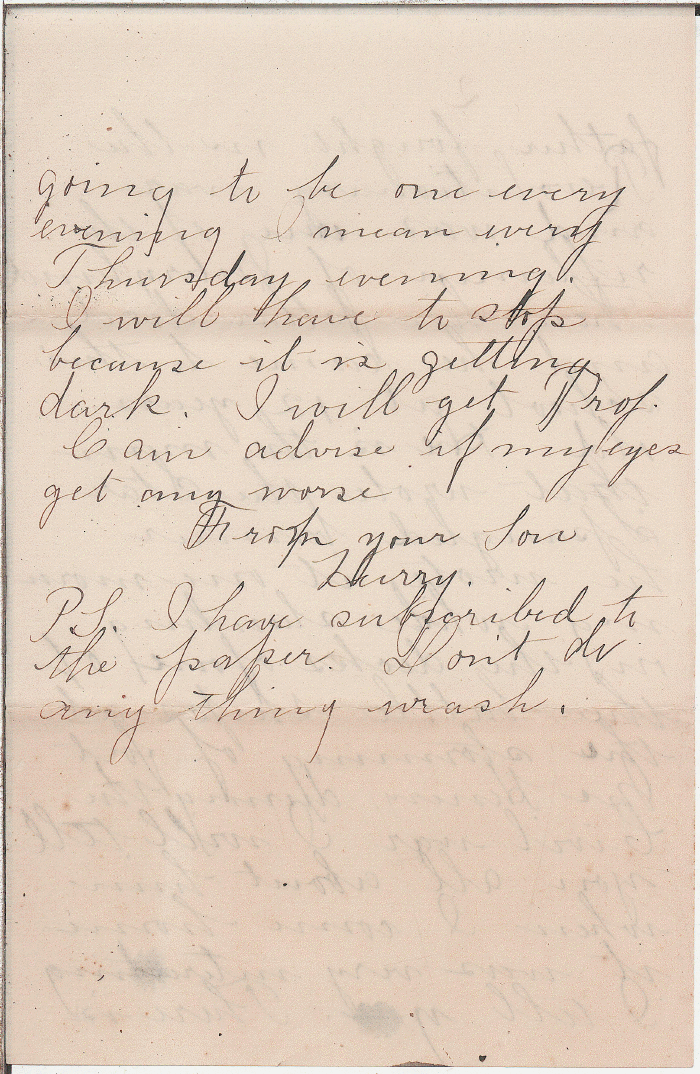 going to be one every
evening I mean every
Thursday evening.
I will have to stop
because it is getting
dark. I will get Prof.
Cain advise if my eyes
get any worse
From your Son
Harry.
P.S. I have subscribed to
the paper. Don't do
any thing wrash.